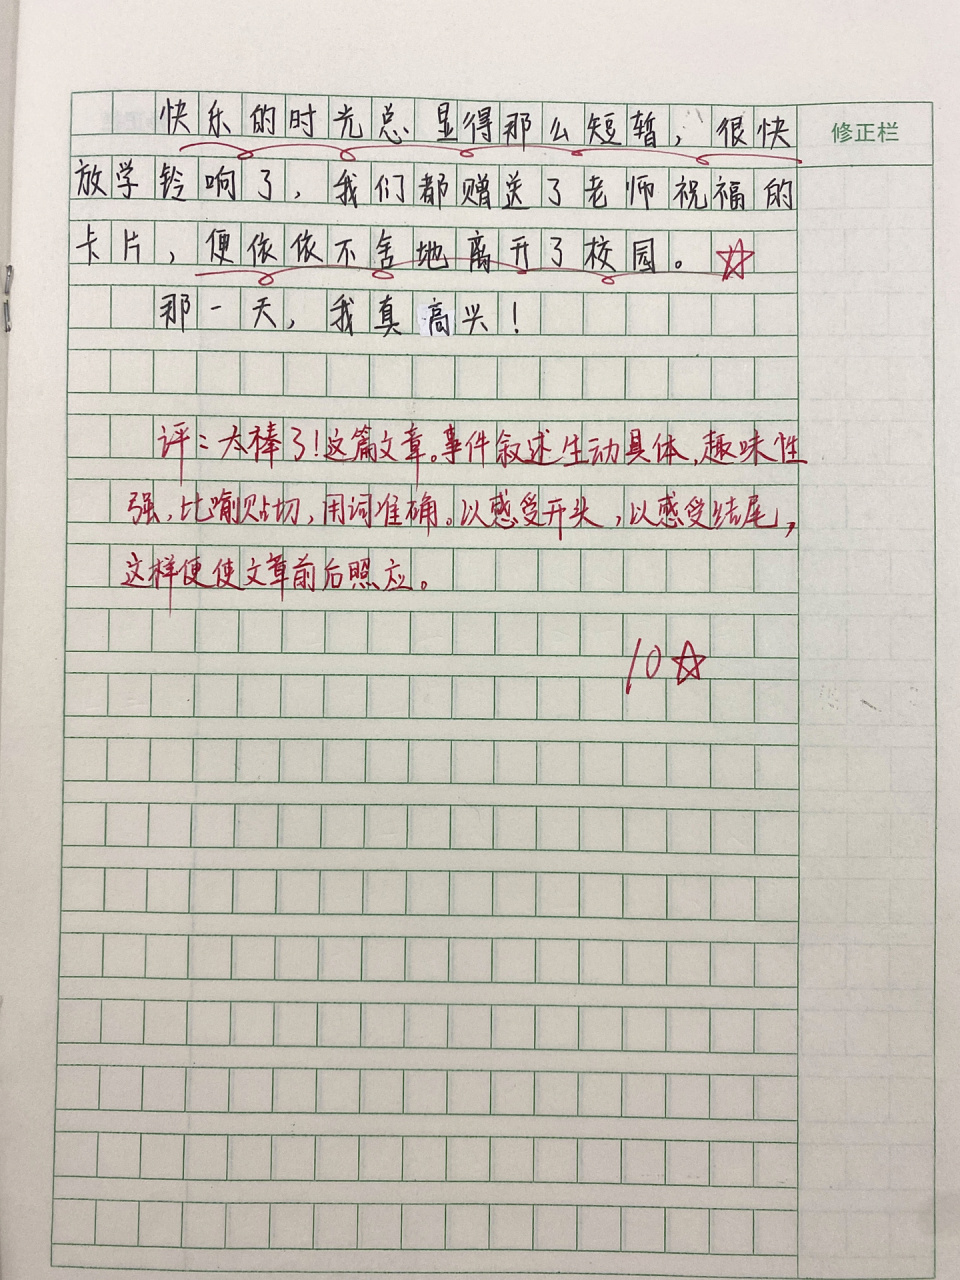 快乐的时光总显得那么短暂，很快
修正栏
放学铃响了，我们都赠送了老师祝福的
卡片，便依依不舍地离开了校园。
那一天，我真高兴！
评：太棒了！这篇文章。事件叙述生动具体，趣味性
强，比喻贴切，用词准确。以感受开头，以感受结尾，
这样便使文章前后照应。
10☆